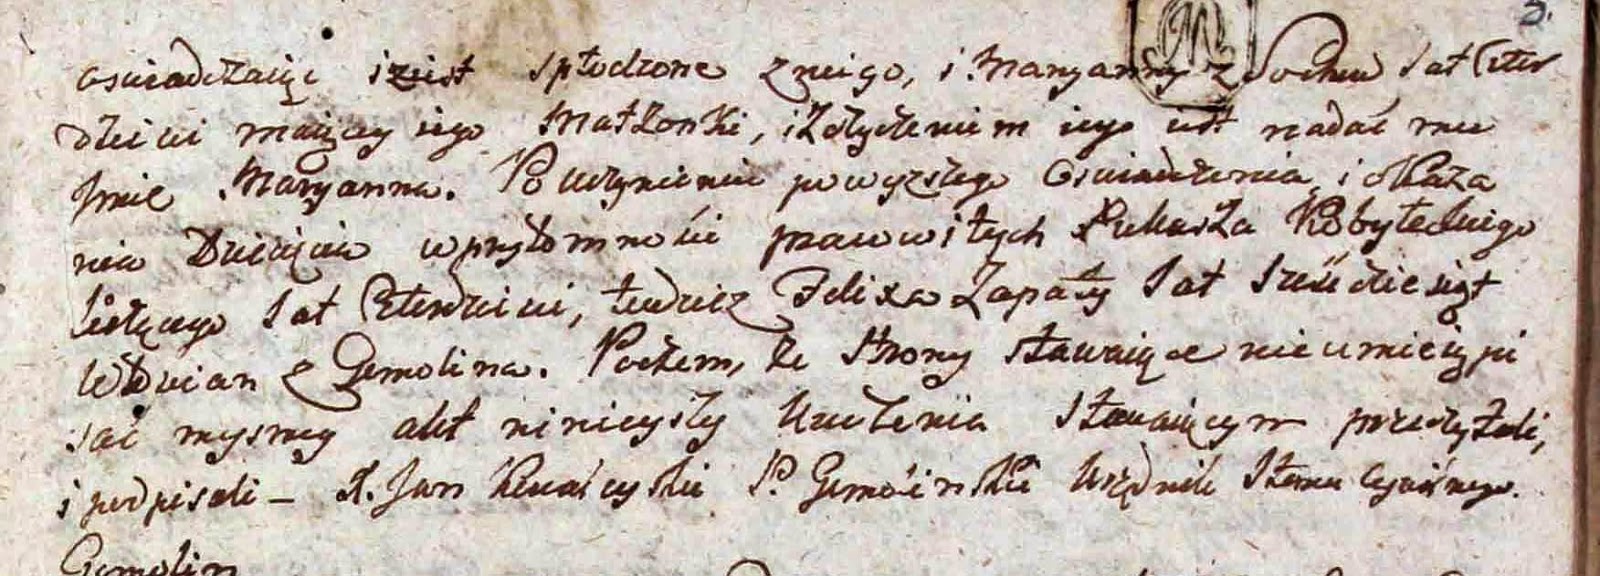 5.
oswiadczaiąc iż iest spłodzone z niego, i Maryanny z Sochów lat Czter
dzieści maiącey iego Małżonki, i życzeniem iego iest nadać mu
Imie Maryanna. Po uczynieniu powyższego Oswiadczenia i okaza
nia Dziecięcia w przytomności pracowitych Łukasza Kobyłeckiego
liczącego lat Czterdzieści, tudzież Felixa Zapały lat Sześćdziesiąt
Włościan z Gomolina. Poczem, że Strony stawaiące nie umieią pi
sać mysmy akt ninieyszy Urodzenia Stawaiącym przeczytali,
i podpisali – X. Jan P. Gomoliński Urzędnik Stanu Cywilnego.
Gomolin